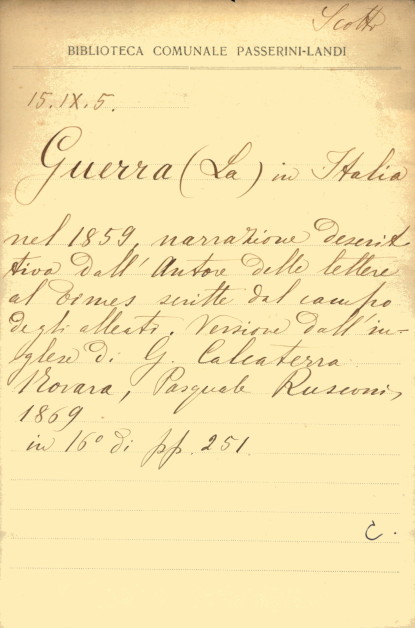 Scotti
BIBLIOTECA COMUNALE PASSERINI-LANDI
15.IX.5.
Guerra (La) in Italia
nel 1859, narrazione descrit
tiva dall'Autore delle lettere
al Times scritte dal campo
degli alleati. Versione dall'in-
glese di G. Calcaterra
Novara, Pasquale Rusconi,
1869
in 16° di pp. 251.
C.